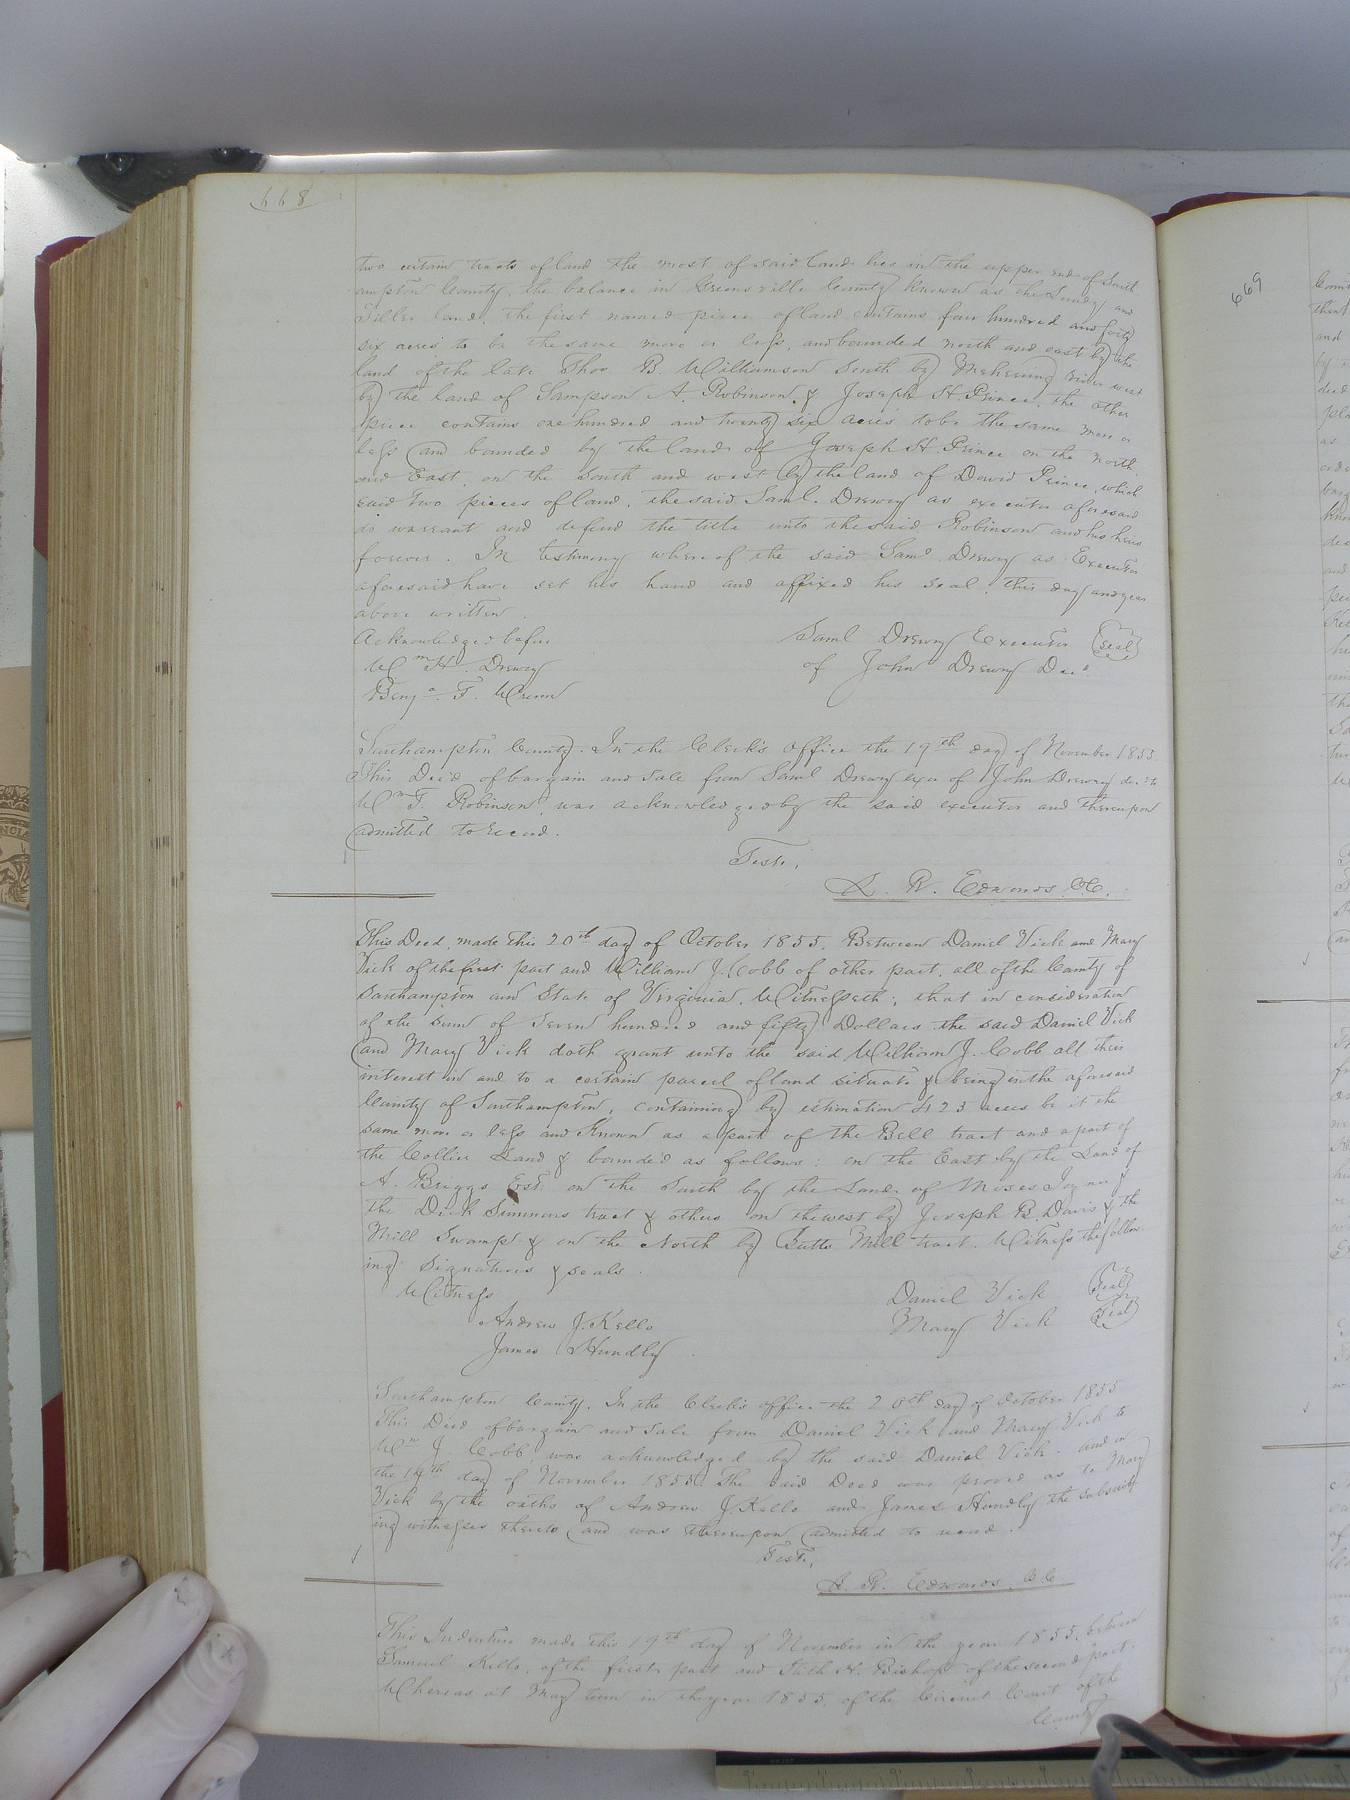 668
two certain tracts of land the most of said land lies in the upper end of South
ampton County, the balance in Greensville County known as the Lundy and
Tiller land. the first named piece of land contains four hundred and forty
six acres to be the same more or less, and bounded north and east by the
land of the late Thos. B. Williamson South by Meherring river west
by the land of Sampson A. Robinson & Joseph H. Prince. the other
piece contains one hundred and twenty six acres to be the same more or
less and bounded by the land of Joseph H Prince on the north
and East, on the South and west by the land of David Prince, which
said two pieces of land, the said Saml. Drewry as executor aforesaid
do warrant and defend the title unto the said Robinson and his heirs
forever. In testimony whereof the said Saml Drewry as Executor
aforesaid have set his hand and affixed his seal, this day and year
above written.
Acknowledged before
Saml Drewry Executor Seal
Wm H. Drewry
of John Drewry Decd
Benja. F. Wrenn
Southampton County. In the Clerk's Office the 19th day of November 1855
This Deed of bargain and sale from Saml Drewry exor of John Drewry decd to
Wm T. Robinson was acknowledged by the said executor and thereupon
admitted to record.
Test.,
L. R. Edwards CC.
This Deed, made this 20th day of October 1855. Between Daniel Vick and Mary
Vick of the first part and William J. Cobb of other part, all of the County of
Southampton and State of Virginia. Witnesseth; that in consideration
of the sum of Seven hundred and fifty Dollars the said Daniel Vick
and Mary Vick doth grant unto the said William J. Cobb all their
interest in and to a certain parcel of land situate & being in the aforesaid
County of Southampton, containing by estimation 423 acres be it the
same more or less and Known as a part of the Bell tract and a part of
the Collier Land & bounded as follows: on the East by the Land of
A. Briggs Est. on the South by the Land of Moses Joyner &
the Dick Simmons tract & others on the west by Joseph B. Davis & the
Mill Swamp & on the North by Butts Mill tract. Witness the follow
ing Signatures & seals.
Witness
Daniel Vick Seal
Andrew J. Kello
Mary Vick Seal
James Hundly
Southampton County. In the Clerk's office the 20th day of October 1855
This Deed of bargain and sale from Daniel Vick and Mary Vick to
Wm J. Cobb was acknowledged by the said Daniel Vick and on
the 19th day of November 1855 The said Deed was proved as to Mary
Vick by the oaths of Andrew J. Kello and James Hundly the subscrib
ing witnesses thereto and was thereupon admitted to record.
Test.,
L. R. Edwards. CC
This Indenture made this 19th day of November in the year 1855. between
Samuel Kello, of the first part and H. Bishop of the second part:
Whereas at May term in the year 1855, of the Circuit Court of the
County
669